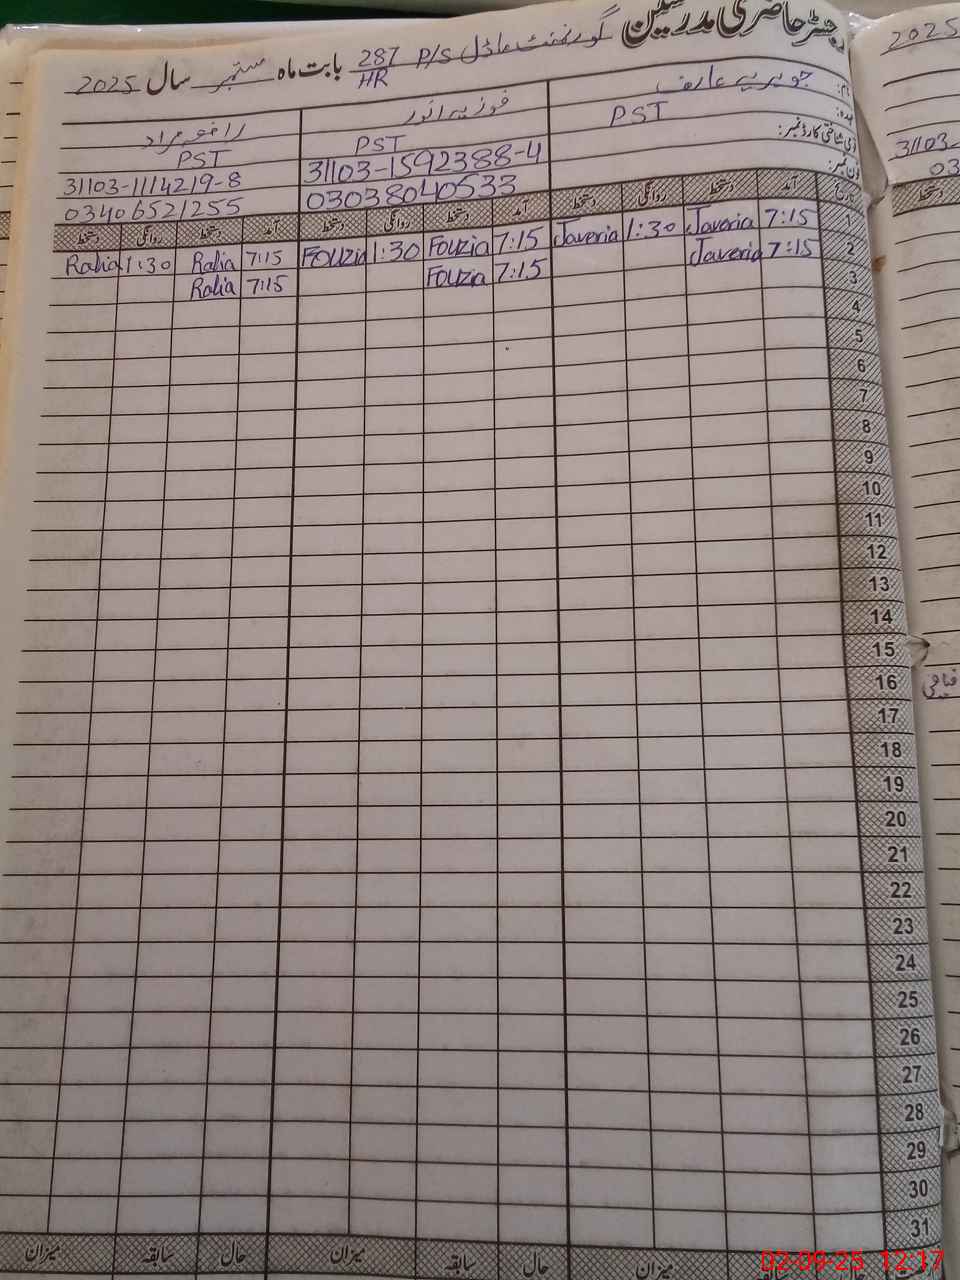 رجسٹر حاضری مدرسین گورنمنٹ ماڈل P/S 287/HR بابت ماہ ستمبر سال 2025
نام: جویریہ عارف فوزیہ انور
عہدہ: PST PST PST
قومی شناختی کارڈ نمبر: 31103-1592388-4 31103-1114219-8
فون نمبر: 03038040533 03406521255
تاریخ آمد دستخط روانگی دستخط آمد دستخط روانگی دستخط آمد دستخط روانگی دستخط
1 7:15 Javeria 1:30 Javeria 7:15 Fouzia 1:30 Fouzia 7:15 Rafia 1:30 Rafia
2 7:15 Javeria 7:15 Fouzia 7:15 Rafia
3
4
5
6
7
8
9
10
11
12
13
14
15
16
17
18
19
20
21
22
23
24
25
26
27
28
29
30
31
میزان حال سابقہ میزان حال سابقہ میزان
2025
31103-
03
دستخط
02-09-25 12:17